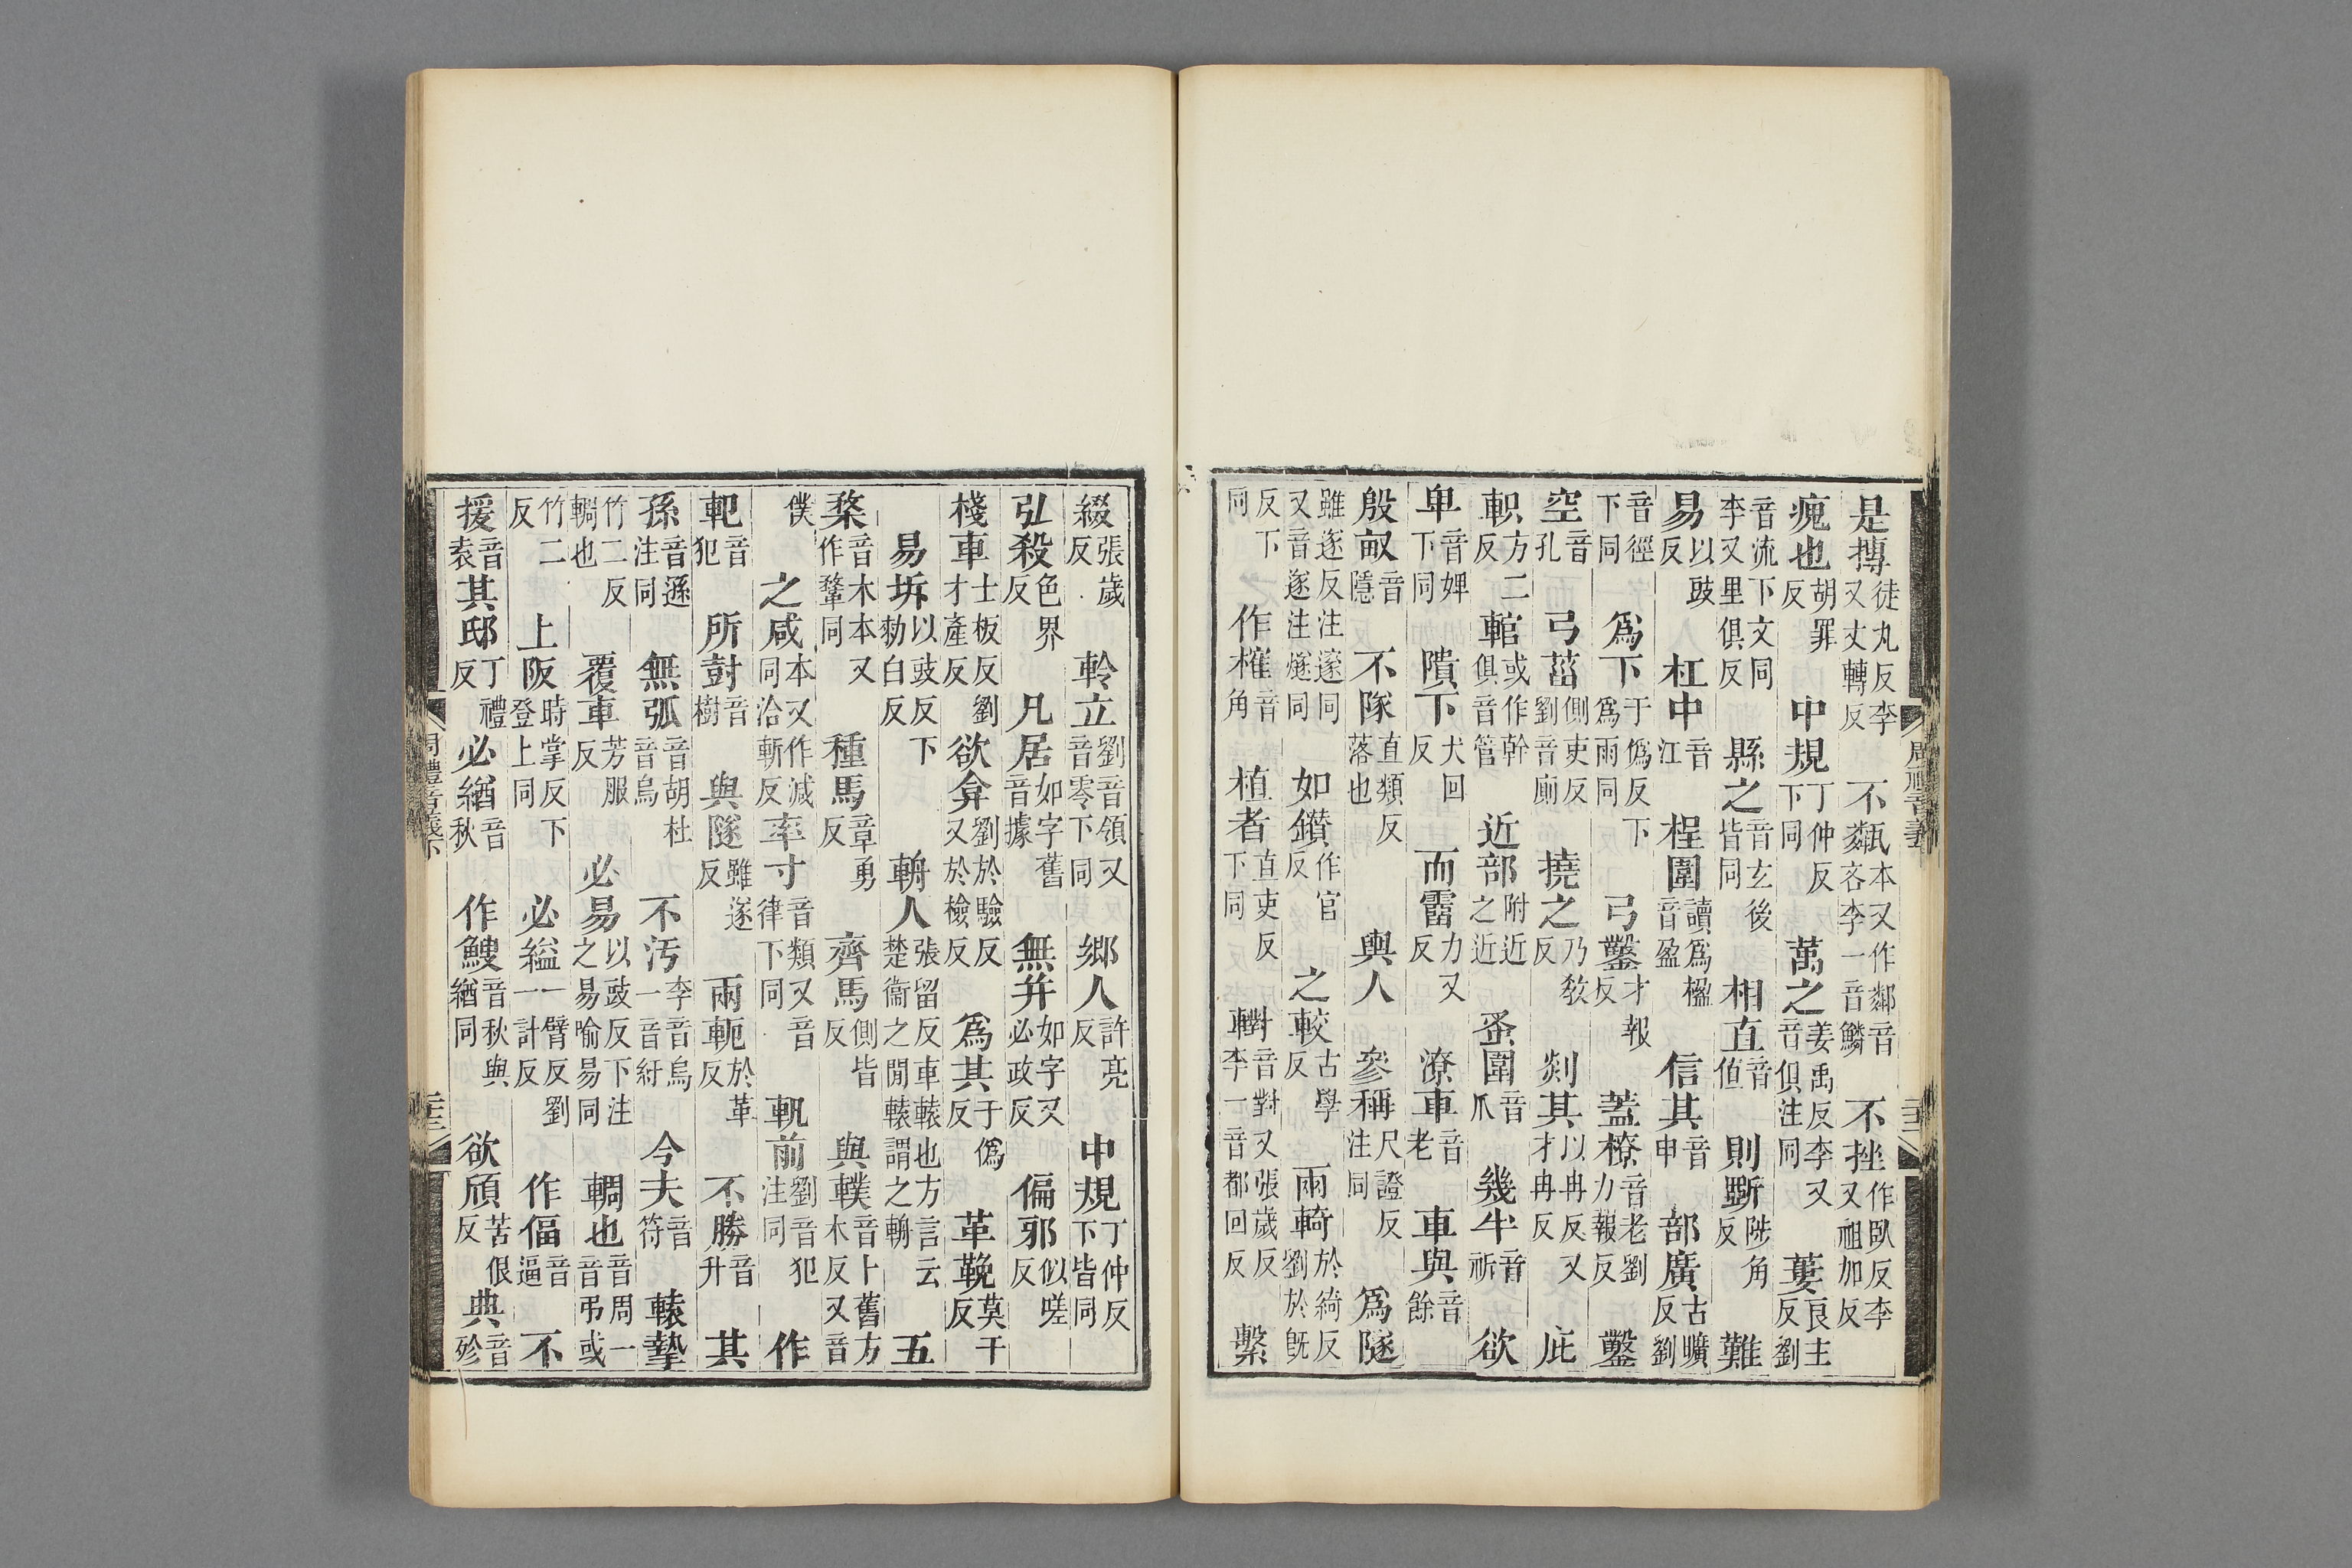 是摶徒丸反李又丈轉反 不甐本又作鄰音吝李一音鱗 不挫作臥反李又祖加反
㾯也胡罪反 中規丁仲反下同 萬之姜禹反李又音俱注同 蔞良主反劉
音流下文同李又里俱反 縣之音玄後皆同 相直音值 則斲陟角反 難
易以豉反 杠中音江 桯圍讀爲楹音盈 信其音申 部廣古曠反劉
音徑下同 爲下于僞反下爲雨同 弓鑿才報反 蓋橑音老劉力報反 鑿
空音孔 弓菑側吏反劉音廁 撓之乃敎反 剡其以冉反又才冉反 庇
軹方二反 輨或作幹俱音管 近部附近之近 蚤圍音爪 幾半音祈 欲
卑音婢下同 隤下犬回反 而霤力又反 潦車音老 車與音餘
殷畝音隱 不隊直類反落也 輿人 參稱尺證反注同 爲隧
雖遂反注邃同又音遂注燧同 如鑽作官反 之較古學反 兩輢於綺反劉於旣反
反下同 作榷音角 植者直吏反下同 轛音對又張歲反李一音都回反 繫
周禮音義下
綴張歲反 軨立劉音領又音零下同 鄉人許亮反 中規丁仲反下皆同
弘殺色界反 凡居如字舊音據 無并如字又必政反 偏邪似嗟反
棧車士板反劉才產反 欲弇劉於驗反又於檢反 爲其于僞反 革鞔莫干反
易坼以豉反下勑白反 輈人張留反車轅也方言云楚衞之閒轅謂之輈 五
楘音木本又作鞪同 種馬章勇反 齊馬側皆反 與轐音卜舊方木反又音
僕 之咸本又作減同洽斬反 率寸音類又音律下同 軓前劉音犯注同 作
軓音犯 所尌音樹 與隧雖遂反 兩軛於革反 不勝音升 其
孫音遜注同 無弧音胡杜音烏 不汚李音烏一音紆 今夫音符 轅摯
竹二反輖也 覆車芳服反 必易以豉反下注之易喻易同 輖也音周一音弔或
竹二反 上阪時掌反下登上同 必縊一臂反劉一計反 作偪音逼 不
援音袁 其邸丁禮反 必緧音秋 作音秋與緧同 欲頎苦佷反 典音殄
周禮音義下